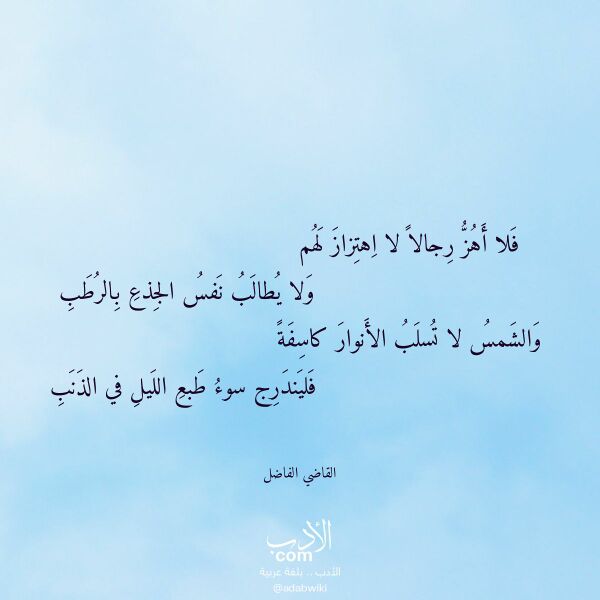 فَلا أَهُزُّ رِجالاً لا اِهتِزازَ لَهُم
وَلا يُطالَبُ نَفسُ الجِذعِ بِالرُطَبِ
وَالشَمسُ لا تُسلَبُ الأَنوارَ كاسِفَةً
فَليَندَرِج سوءُ طَبعِ اللَيلِ في الذَنَبِ
القاضي الفاضل
الأدب
.com
الأدب .. بلغة عربية
@adabwiki